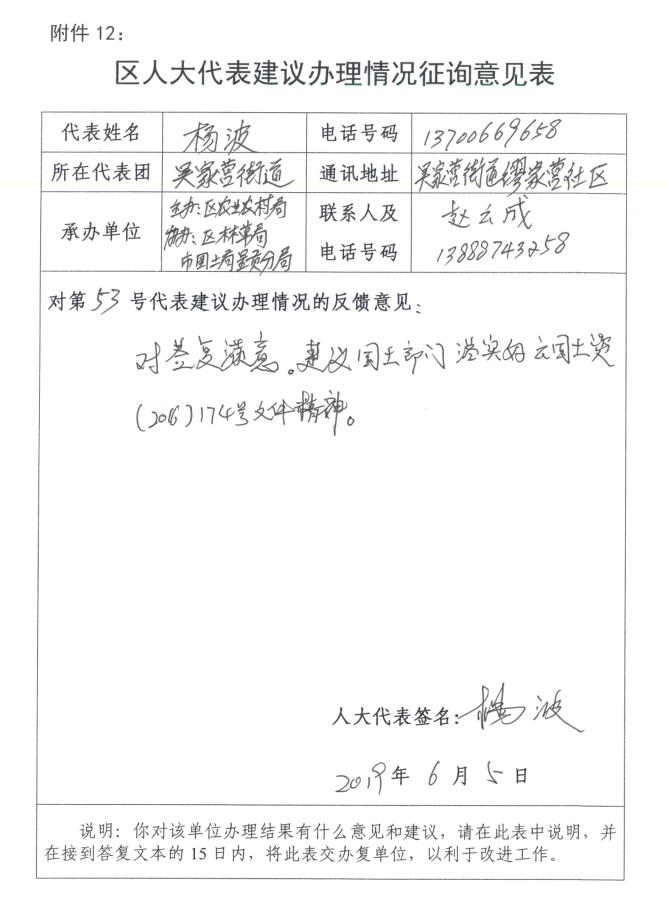 附件 12：
区人大代表建议办理情况征询意见表
代表姓名 杨波 电话号码 13700669658
所在代表团 吴家营街道 通讯地址 吴家营街道缪家营社区
承办单位 主办：区农业农村局 协办：区林草局 市国土局呈贡分局 联系人及电话号码 赵云成 13888743258
对第 53 号代表建议办理情况的反馈意见：
对答复满意。建议国土部门落实好云国土资
(2016)174号文件精神。
人大代表签名：杨波
2019 年 6 月 5 日
说明：你对该单位办理结果有什么意见和建议，请在此表中说明，并
在接到答复文本的 15 日内，将此表交办复单位，以利于改进工作。